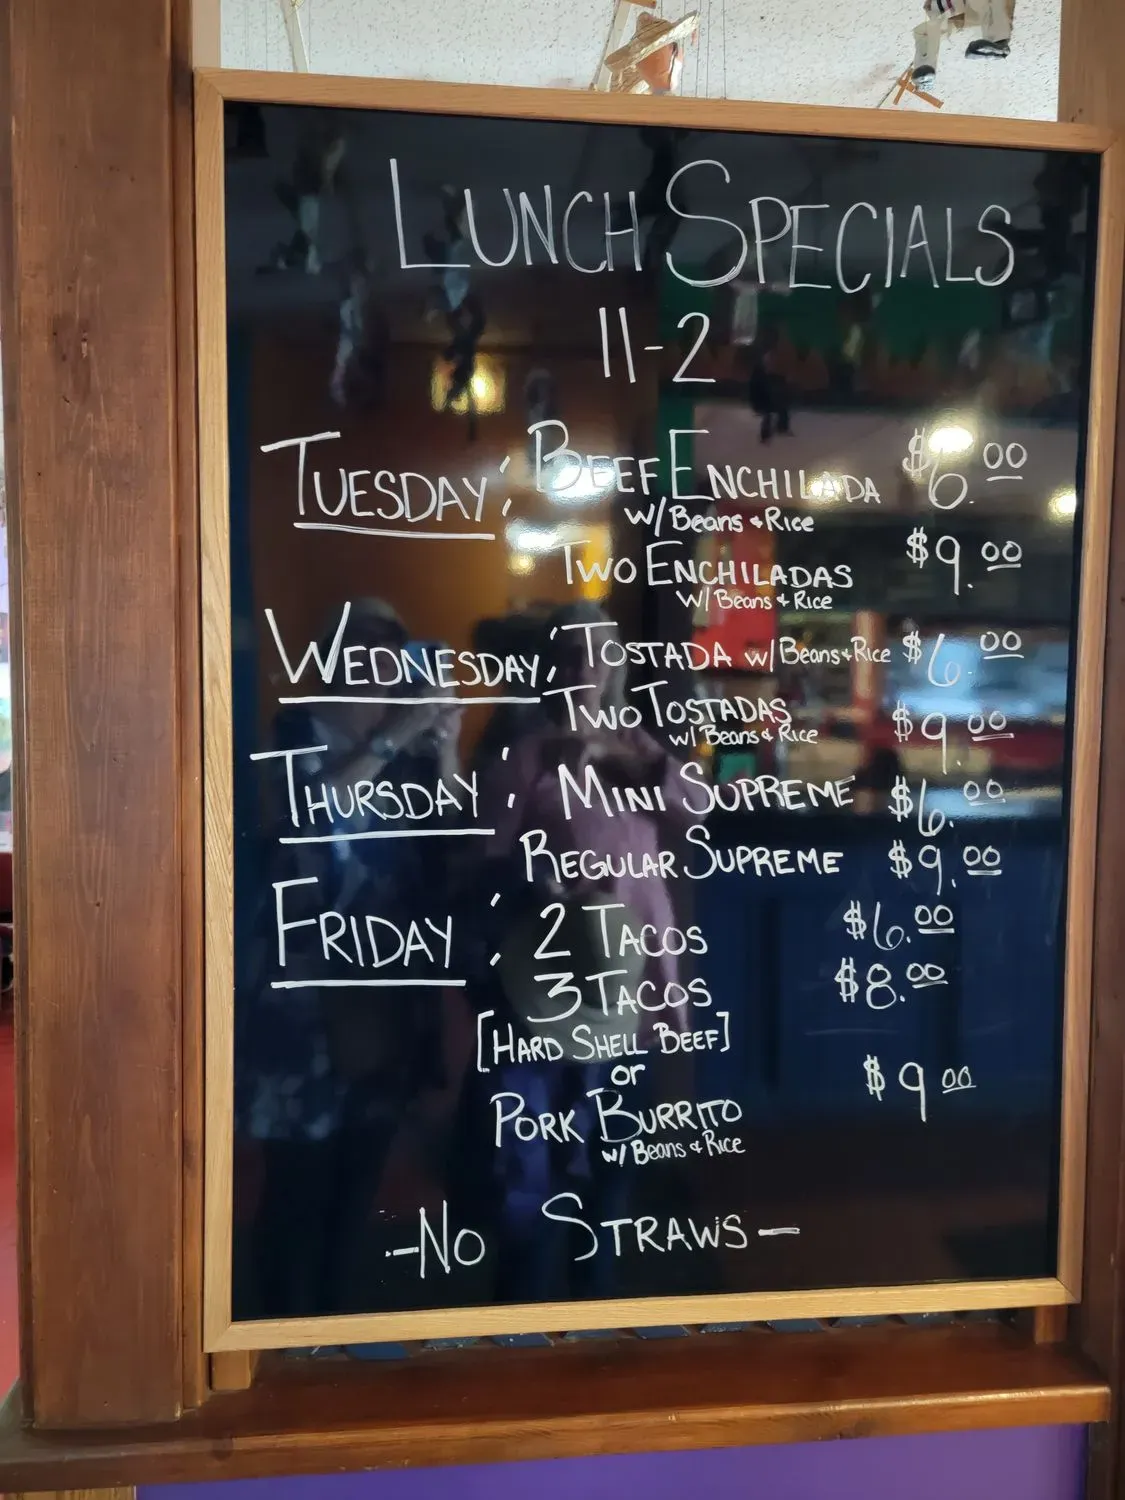 LUNCH SPECIALS
11-2
TUESDAY: BEEF ENCHILADA $6.00
w/ Beans + Rice
TWO ENCHILADAS $9.00
w/ Beans + Rice
WEDNESDAY: TOSTADA w/ Beans + Rice $6.00
TWO TOSTADAS $9.00
w/ Beans + Rice
THURSDAY: MINI SUPREME $6.00
REGULAR SUPREME $9.00
FRIDAY: 2 TACOS $6.00
3 TACOS $8.00
[HARD SHELL BEEF]
or
PORK BURRITO $9.00
w/ Beans + Rice
-NO STRAWS-